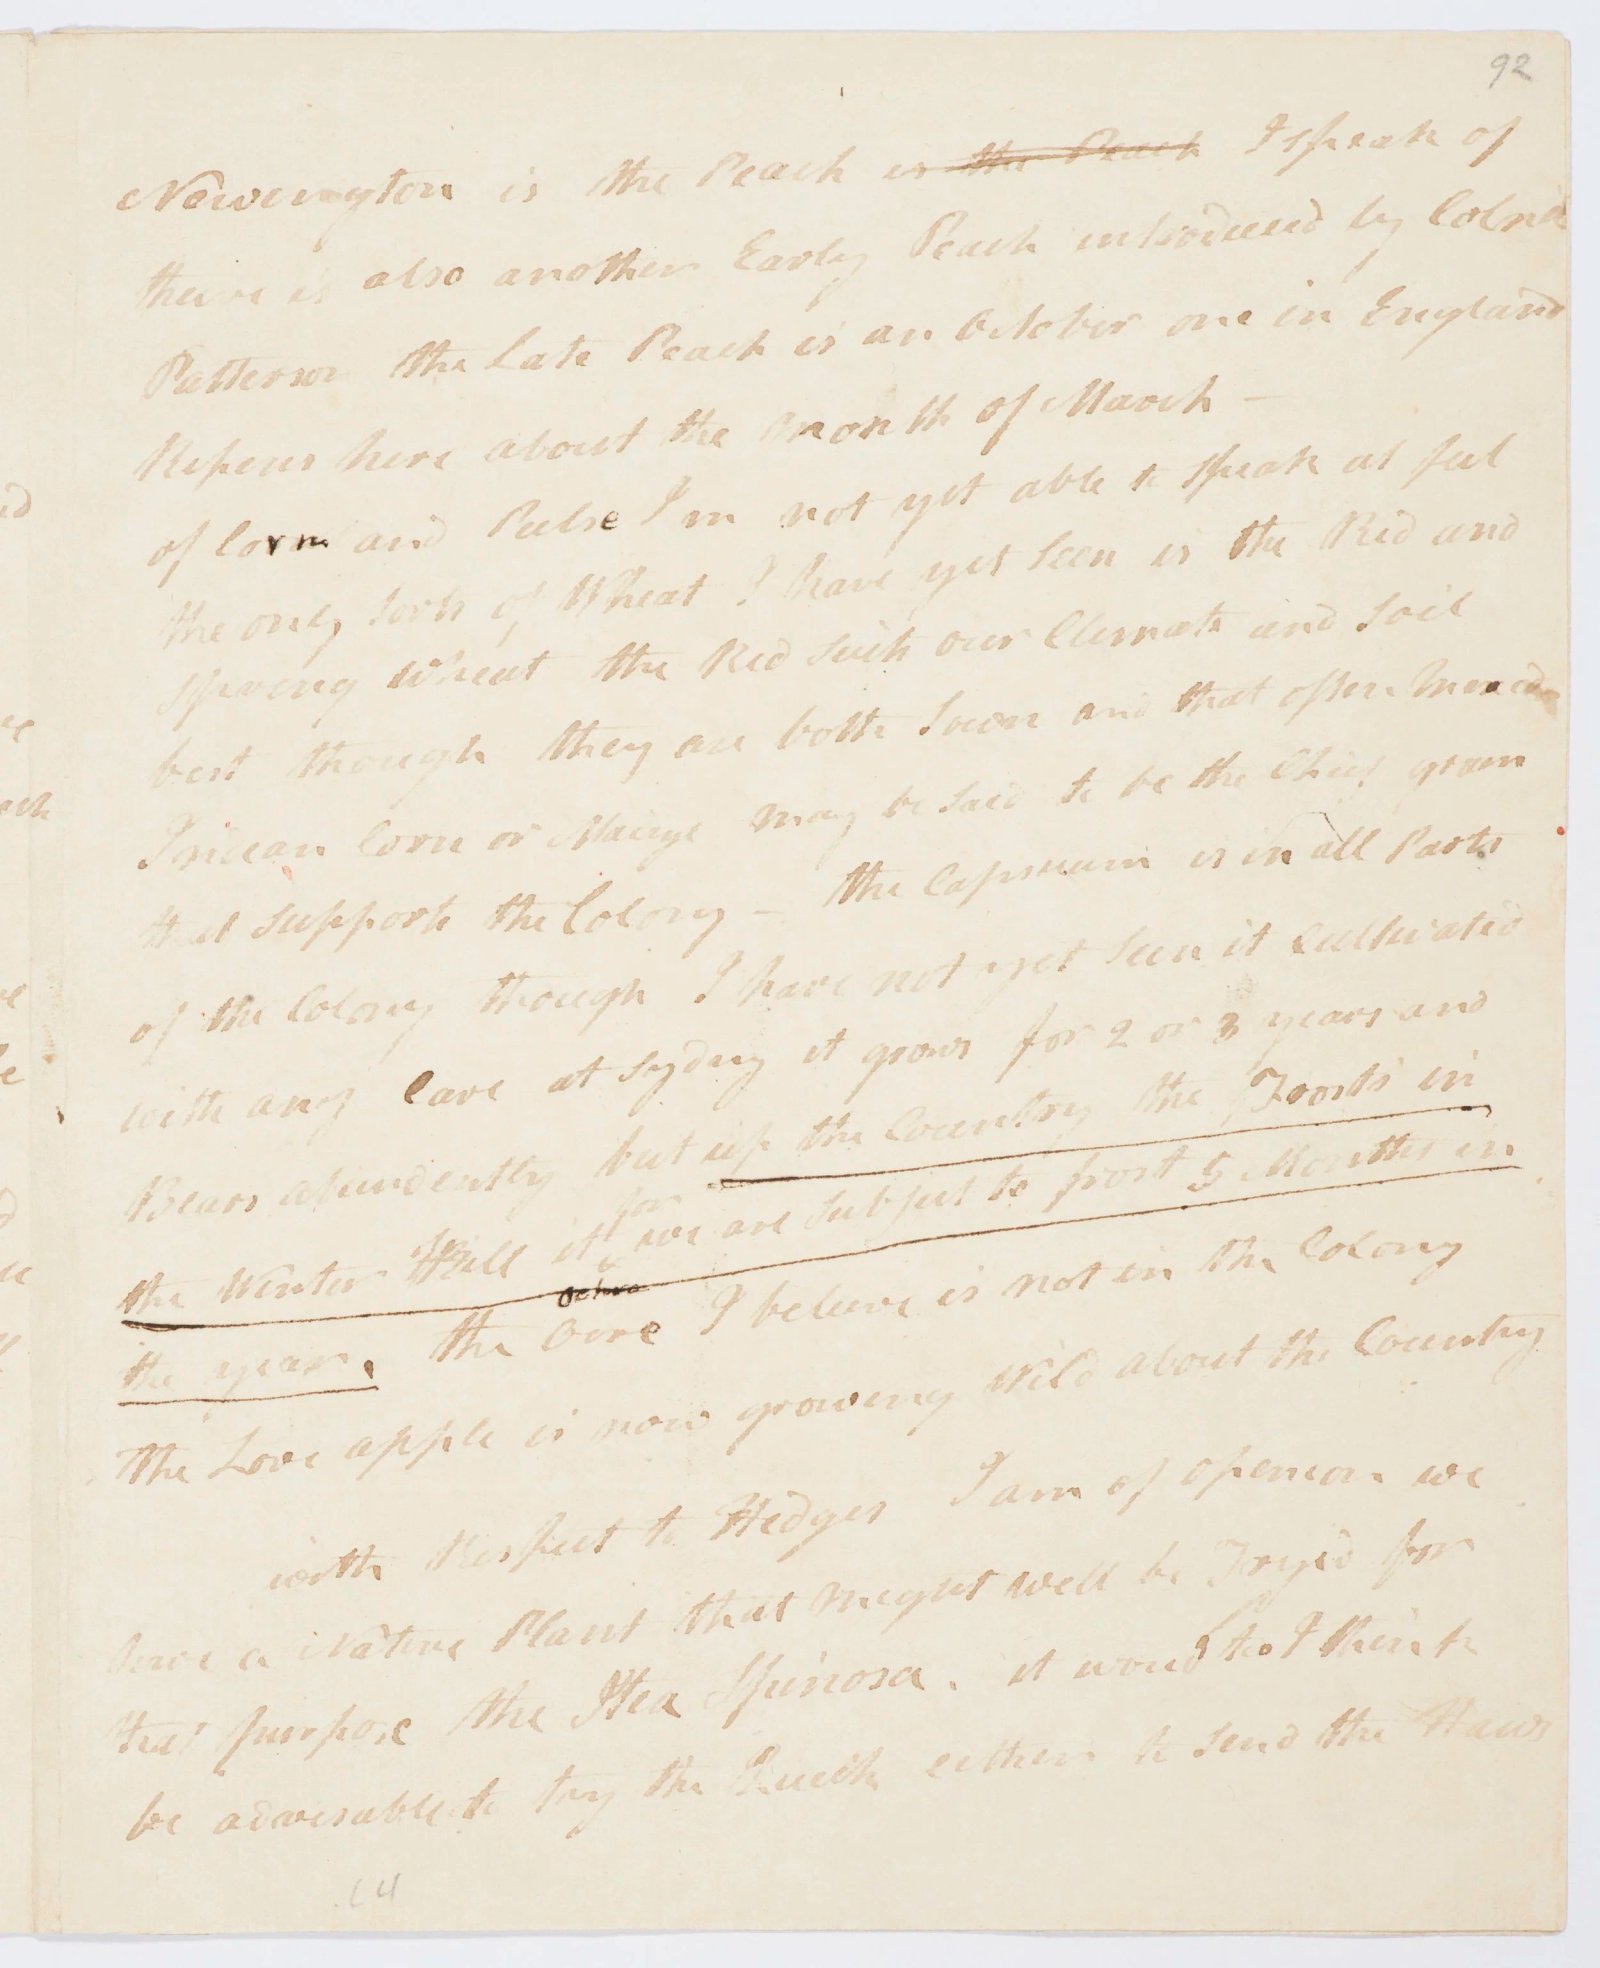 92
Newengton is the Peach is the Peach I speak of
theire is also another Early Peach introduced by Colnel
Patterson the Late Peach is an October one in England
Ripens here about the month of March -
of Corn and Pulse I m not yet able to speak at ful
the only sorts of Wheat I have yet seen is the Rid and
Spreng Wheat the Rid suits our Clemate and Soil
best though they are both Sown and that often Mixed
Indean Corn or Maize may be said to be the Chief gran
that supports the Colony - the Capsicum is in all Parts
of the Colony though I have not yet seen it Cultivated
with any Care at Sydny it grows for 2 or 3 years and
Bears abundently but up the Country the Frosts in
the Winter Kill it for we are subject to frost 5 Months in
ochra
the year. the Ocre I beleive is not in the Colony
the Love apple is now growing Wild about the Country
with Respect to Hedges I am of openion we
have a Native Plant that might well be Tryid for
that purpose the Itea Spinosa. it woud to I think
be advisable to try the Quick either to send the Haws
14